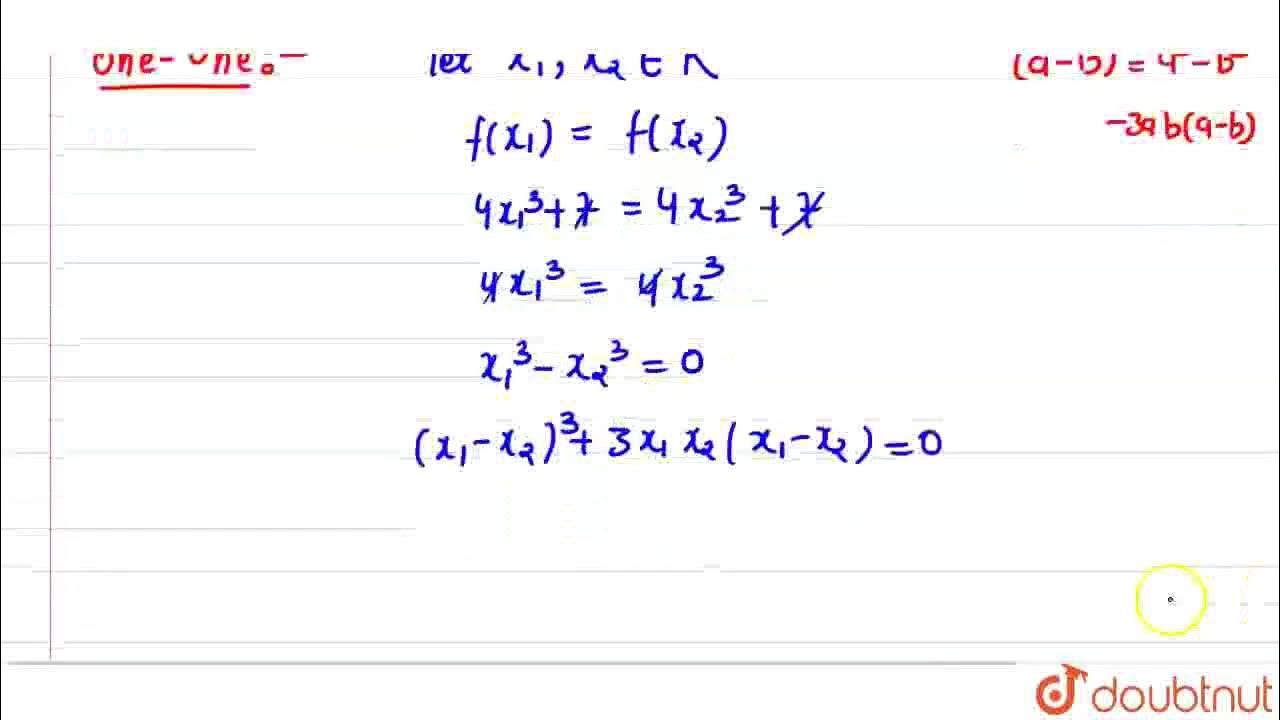 One-One:-
let x₁, x₂ ∈ R
-3ab(a-b)
f(x₁) = f(x₂)
4x₁³+7 = 4x₂³+7
4x₁³ = 4x₂³
x₁³-x₂³=0
(x₁-x₂)³+3x₁x₂(x₁-x₂)=0
doubtnut